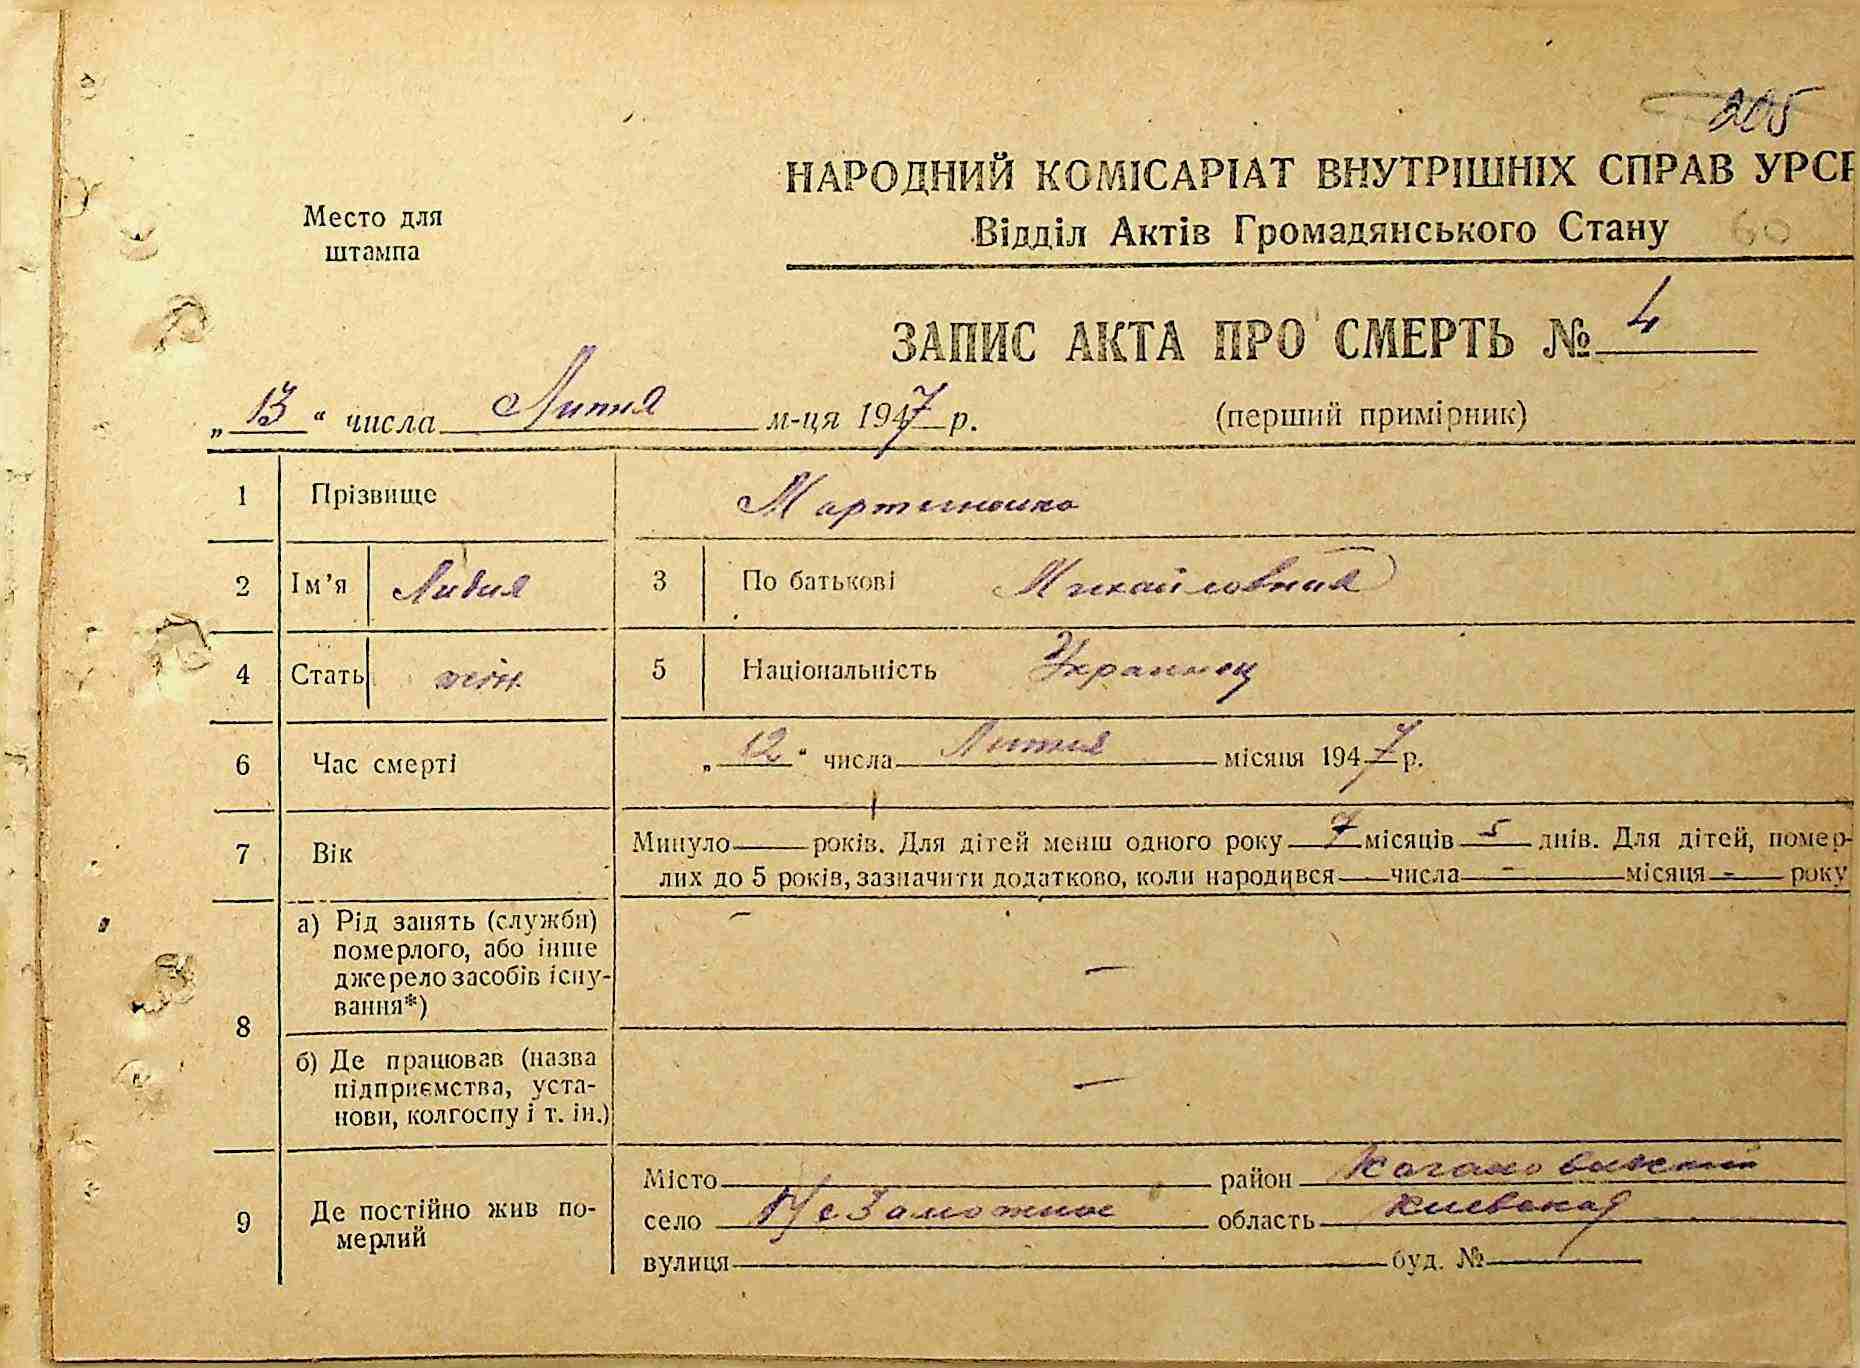 205
НАРОДНИЙ КОМІСАРІАТ ВНУТРІШНІХ СПРАВ УРСР
Место для штампа
Відділ Актів Громадянського Стану 60
ЗАПИС АКТА ПРО СМЕРТЬ № 4
„13“ числа Липня м-ця 1947 р. (перший примірник)
1 Прізвище Мартиненко
2 Ім’я Лидия 3 По батькові Михайловная
4 Стать жін. 5 Національність Украинец
6 Час смерті „12“ числа Липня місяця 1947 р.
7 Вік Минуло років. Для дітей менш одного року 7 місяців 5 днів. Для дітей, помер-
лих до 5 років, зазначити додатково, коли народився — числа - місяця - року
8 а) Рід занять (служби) –
померлого, або інше
джерело засобів існу- —
вання*)
б) Де працював (назва
підприємства, уста- —
нови, колгоспу і т. ін.)
9 Де постійно жив по-
мерлий
Місто район Кагановический
село НеЗаможное область Киевская
вулиця буд. №